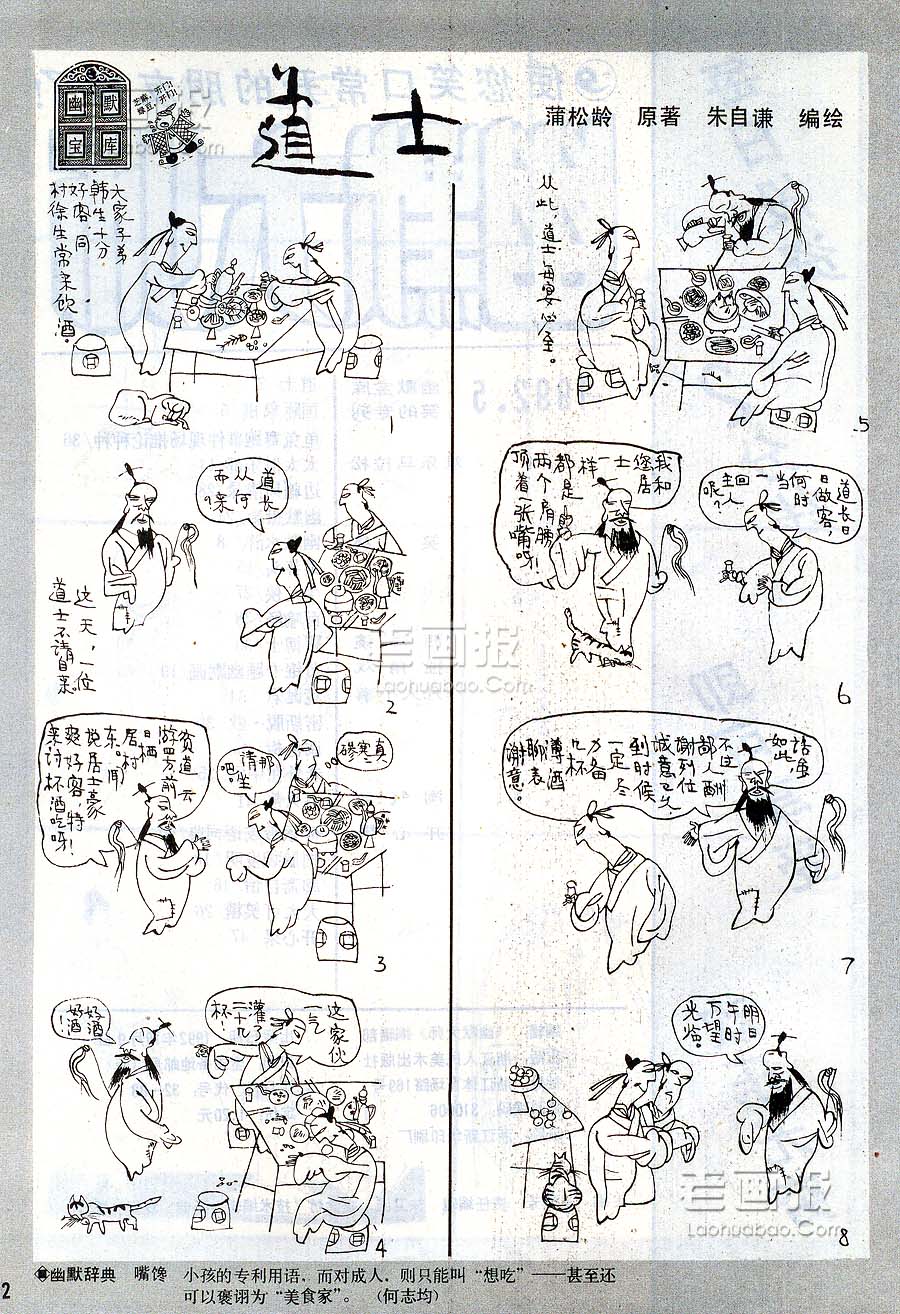 幽默
宝库
芝麻，开门！
绿豆，开门！
道士
蒲松龄 原著 朱自谦 编绘
大家子弟
韩生十分
好客，同
村徐生常来饮酒。
1
这天，一位
道士不请自来
道长
从何
而来？
2
贫道云
游四方，前
日栖
居村
东，听闻
悦居士豪
爽好客，特
来讨杯酒吃呀！
那
请坐
吧
真
寒
碜
3
好酒
好酒！
这家伙
一气
灌了
二十几
杯！
4
从此，道士每宴必至。
5
我和
您居
士一样
都是
两个肩膀
顶着一张嘴呀！
道长日
日做客，
何时
当一回
主人
呢？
6
话虽
如此，
不过
鄙人酬
谢列位
诚意已久，
到时候
一定尽
力备
几杯
薄酒
聊表
谢意。
7
明日
午时
万望
光临
8
老画报
Laohuabao.Com
老画报
Laohuabao.Com
幽默辞典 嘴馋 小孩的专利用语，而对成人，则只能叫“想吃”——甚至还
可以褒诩为“美食家”。 （何志均）
2